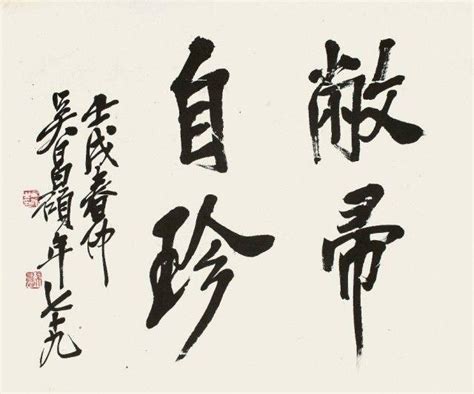 敝帚
自珍
壬戌春仲
吳昌碩年七十九